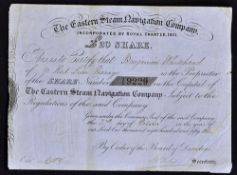 The Eastern Steam Navigation Company,
INCORPORATED BY ROYAL CHARTER, 1852.
£20 SHARE.
These is to Certify that Benjamin Whitehead
of is the Proprietor
of the SHARE Number 19226 in the Capital of
The Eastern Steam Navigation Company, Subject to the
Regulations of the said Company.
Given under the Common Seal of the said Company
the day of in the year
of our Lord One thousand eight hundred and fifty
By Order of the Board of Directors
Secretary.